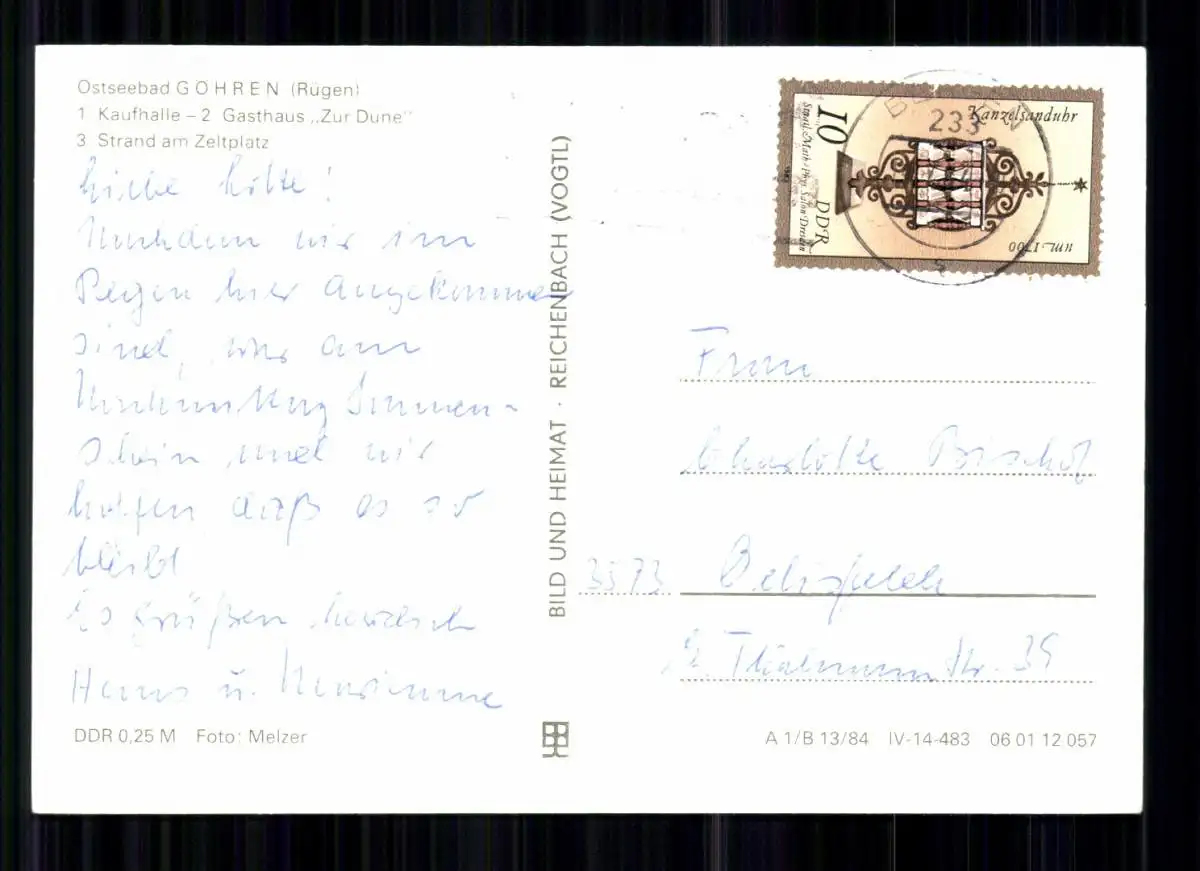 Ostseebad GÖHREN (Rügen)
1 Kaufhalle – 2 Gasthaus „Zur Dune"
3 Strand am Zeltplatz
Liebe Lotte!
Nachdem wir im
Regen hier angekommen
sind, war am
Nachmittag Sonnen-
schein und wir
hoffen daß es so
bleibt
Es grüßen herzlich
Hans u. Marianne
DDR 0,25 M Foto: Melzer
BILD UND HEIMAT · REICHENBACH (VOGTL)
Kanzelsanduhr
um 1700
10 DDR
Staatl. Math.-Phys. Salon Dresden
233
Frau
Charlotte Bischof
3573 Oebisfelde
E. Thälmannstr. 39
A 1/B 13/84 IV-14-483 06 01 12 057